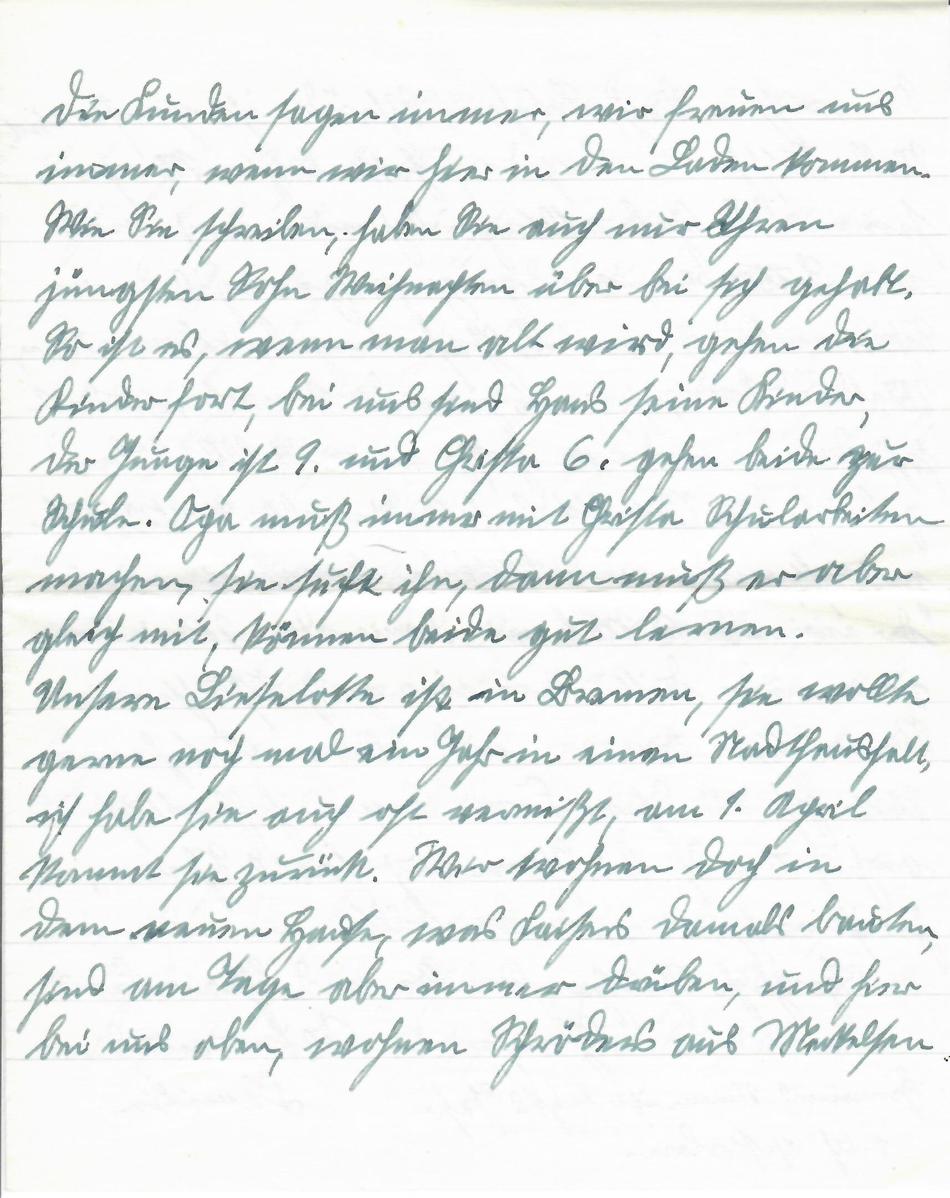 Die Kunden sagen immer, wir freuen uns
immer, wenn wir hier in den Laden kommen.
Wie Sie schreiben, haben Sie auch nur Ihren
jüngsten Sohn Weihnachten über bei sich gehabt.
So ist es, wenn man alt wird, gehen die
Kinder fort, bei uns sind Hans seine Kinder,
der Junge ist 9. und Christa 6. gehen beide zur
Schule. Opa muß immer mit Christa Schularbeiten
machen, sie sucht ihn, dann muß er aber
gleich mit, können beide gut lernen.
Unsere Lieselotte ist in Bremen, sie wollte
gerne noch mal ein Jahr in einen Stadthaushalt,
ich habe sie auch oft vermißt, am 1. April
kommt sie zurück. Wir wohnen doch in
dem neuen Hause, was Kaisers damals bauten,
sind am Tage aber immer drüben, und hier
bei uns oben, wohnen Schröders aus Meckelsen